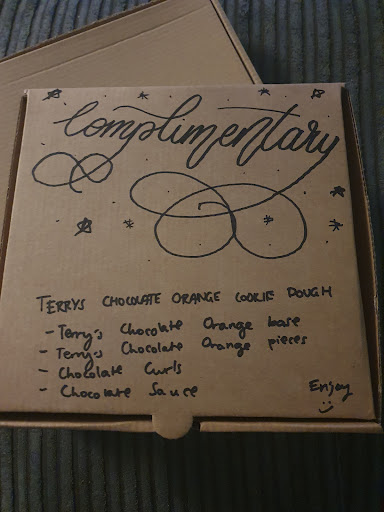 Complimentary
TERRYS CHOCOLATE ORANGE COOKIE DOUGH
- Terry's Chocolate Orange base
- Terry's Chocolate Orange pieces
- Chocolate Curls
- Chocolate Sauce
Enjoy